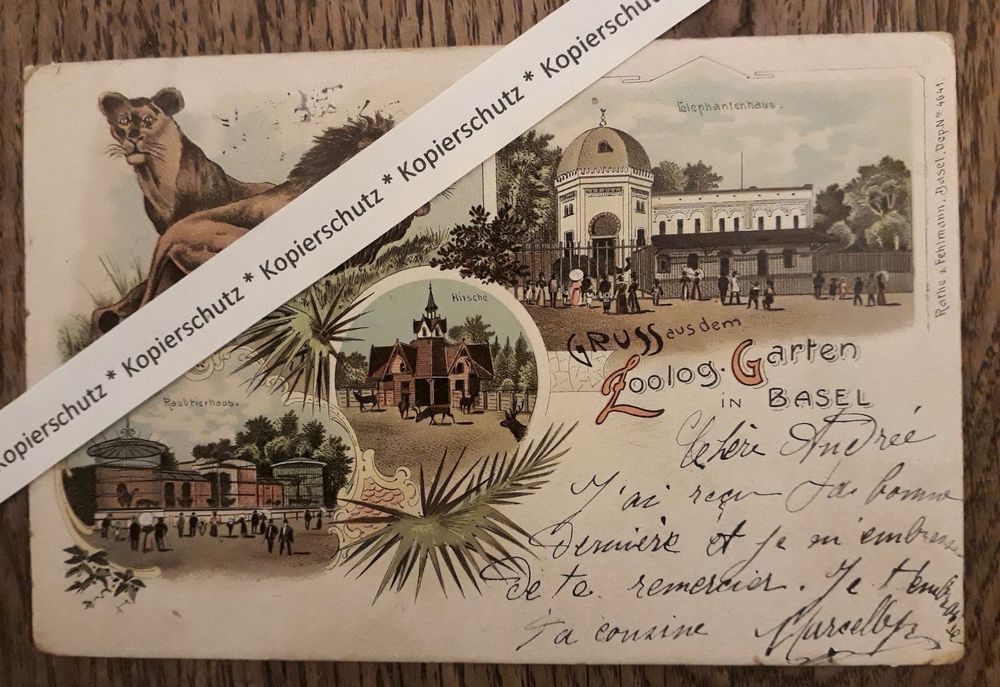 Kopierschutz * Kopierschutz * Kopierschutz * Kopierschutz * Kopierschutz
Elephantenhaus.
Hirsche
Raubthierhaus.
GRUSS aus dem
Zoolog. Garten
IN BASEL
Rathe & Fehlmann, Basel. Dep. No 4641.
Chère Andrée
J'ai reçu ta bonne
Dernière et je m'embresse
de te remercier. Je t'embrasse
Ta cousine Marcelle